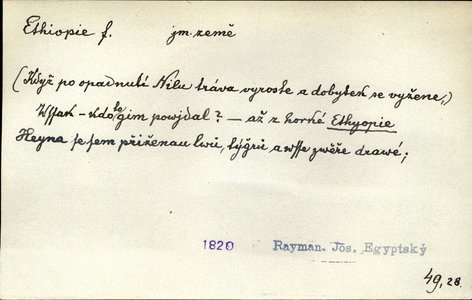 Ethiopie f. jm. země
(Když po opadnutí Nilu tráva vyroste a dobytek se vyžene,)
Wssak – kdo te gim powjdal? – až z horké Ethyopie
Heyna se sem přiženau lwi, týgři a wsse zwěře drawé;
1820 Rayman. Jos. Egyptský
49, 28.